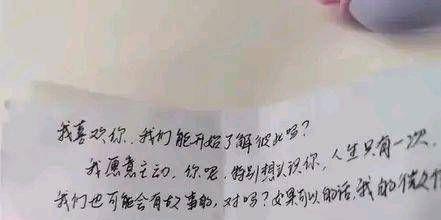 我喜欢你,我们能开始了解彼此吗?
我愿意主动,你呢,特别想认识你,人生只有一次,
我们也可能会有故事的,对吗?如果可以的话,我的微